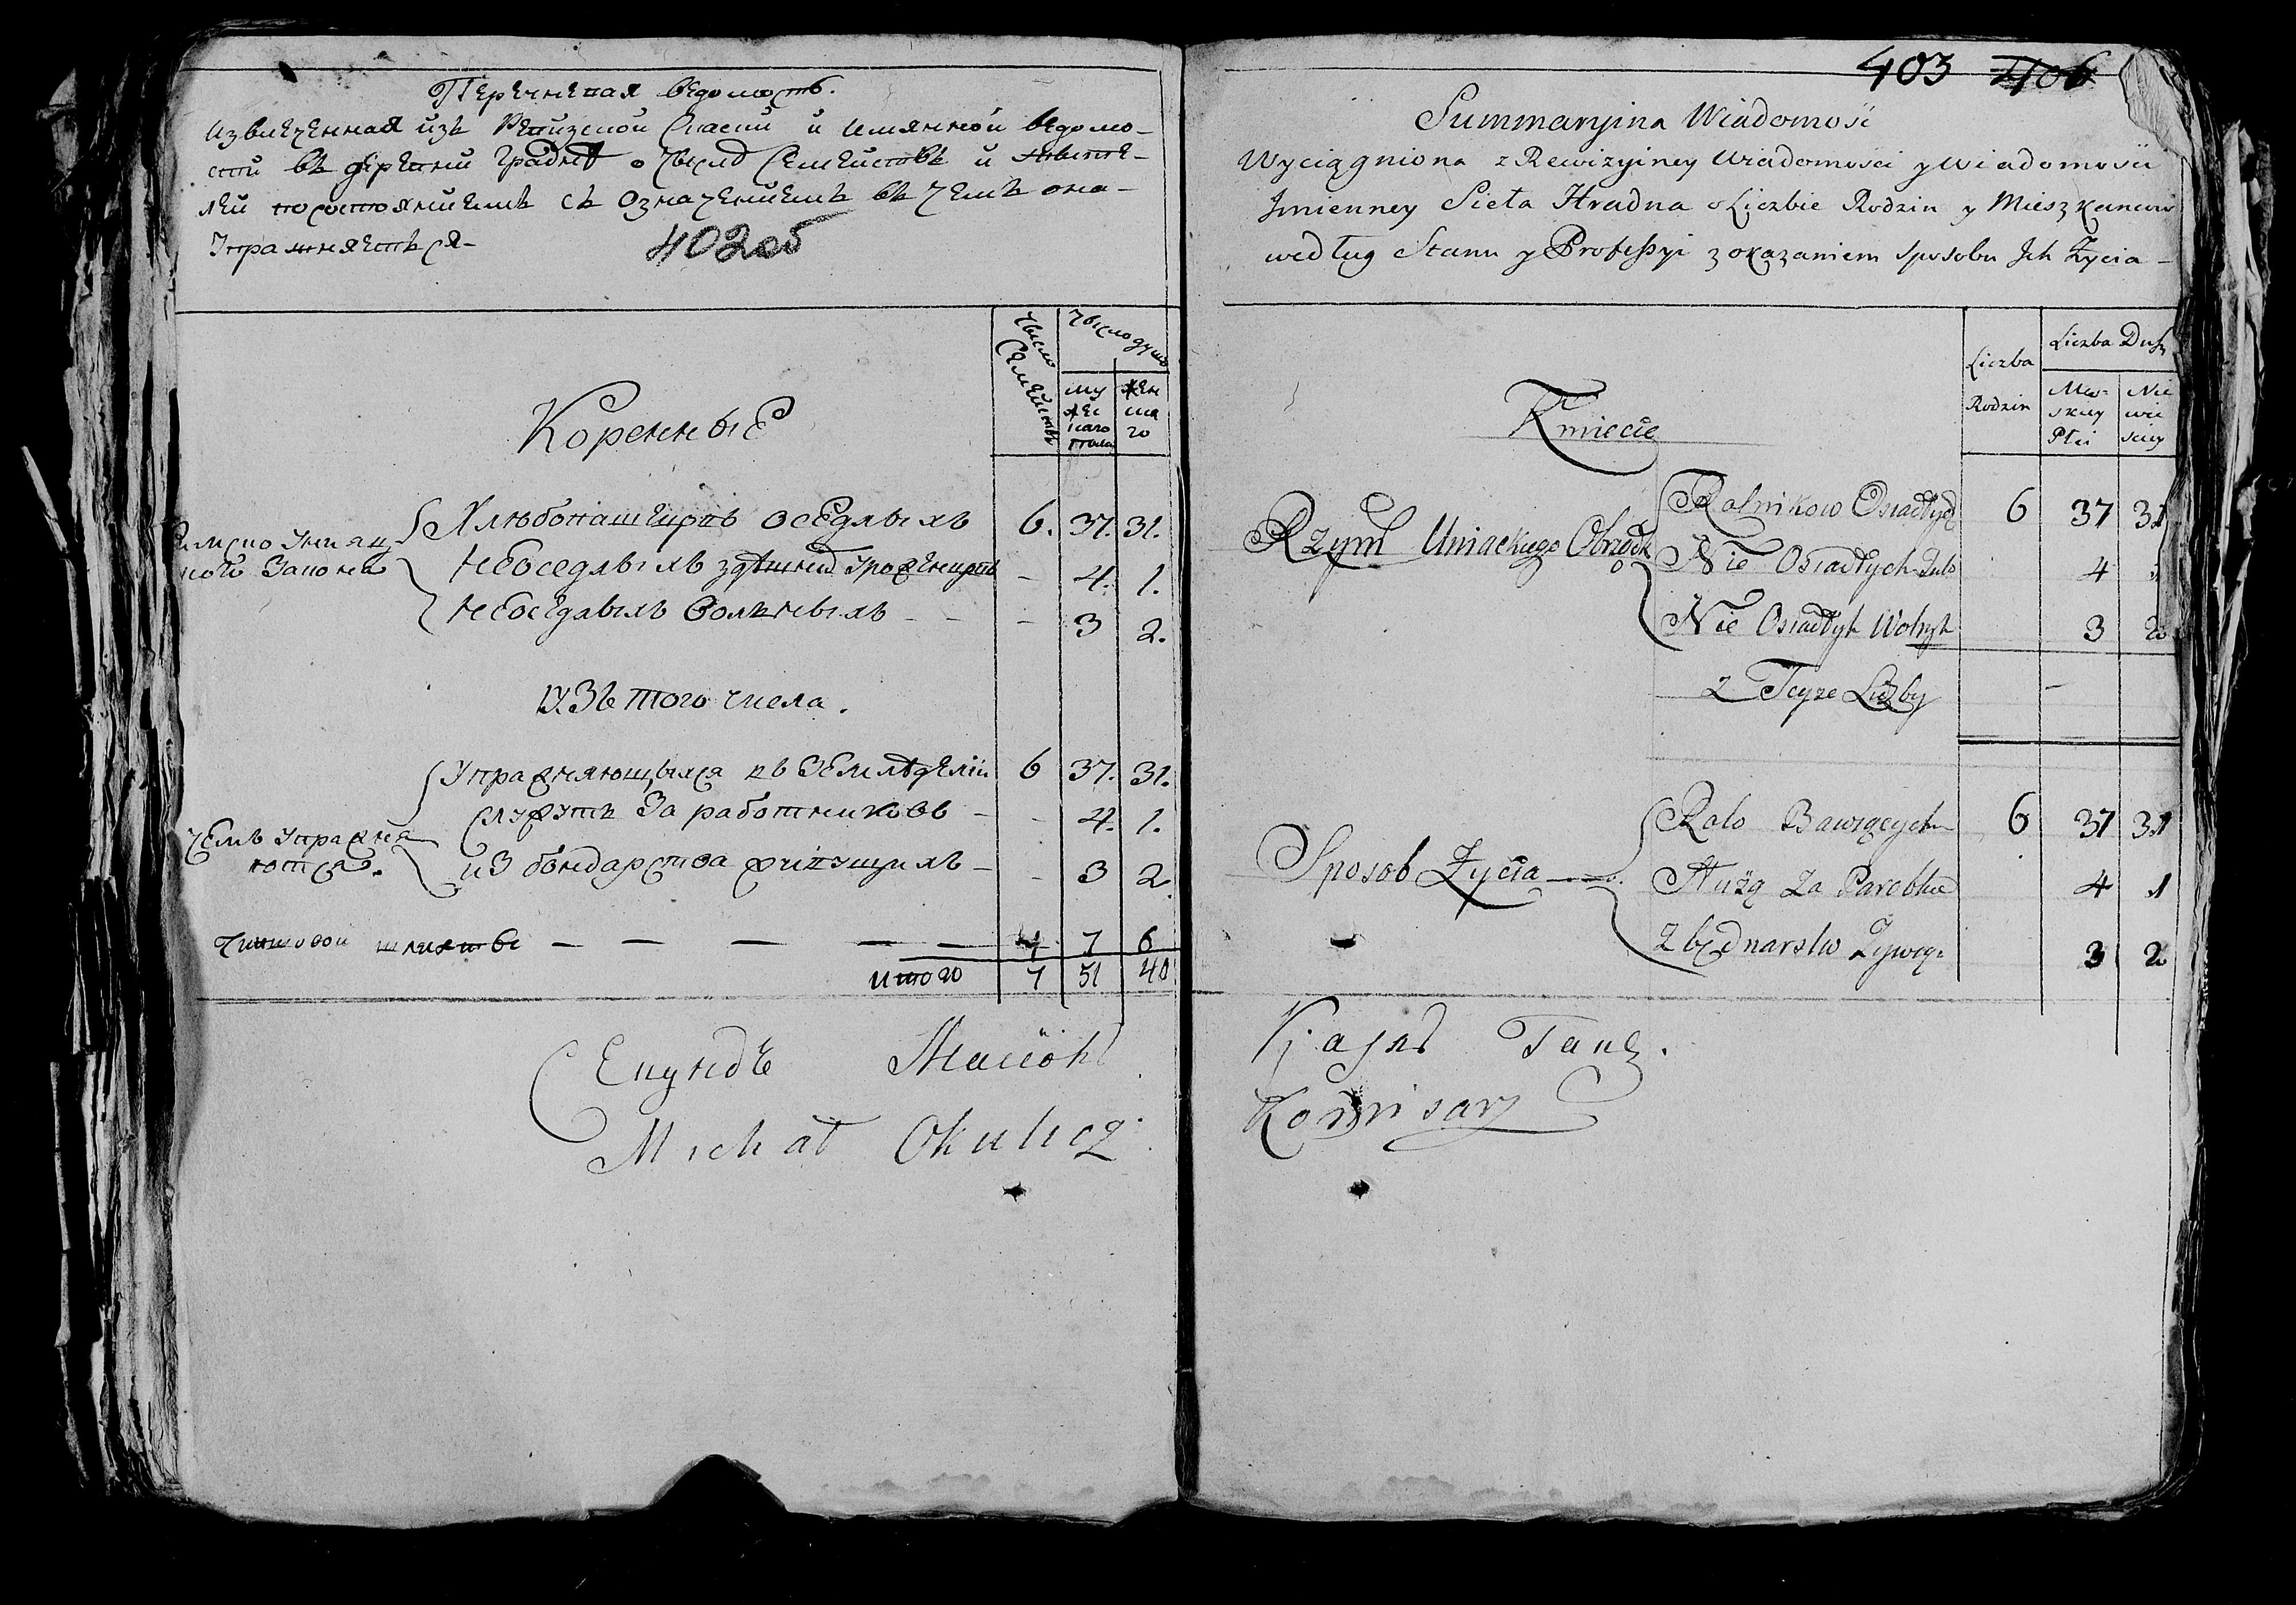 Перечневая ведомость.
извлеченная изъ Ревизской Скаски и имянной ведомо-
сти въ деревни Градне о числе Семействъ и жите-
лей по состояниемъ съ означениемъ въ чемъ она
Упражняется-
402об
число Семействъ
число душъ
му жес каго пола
жен ска го
Коренные
Римско Униац
кого Закона
Хлебопашцовъ оседлыхъ 6. 37. 31.
Неоседлыхъ здешнихъ уроженцовъ - 4. 1.
Неоседлыхъ вольныхъ - - - 3 2.
изъ того числа.
Упражняющыхся въ земледелии 6 37. 31.
Чемъ упражня
ются.
служутъ за работниковъ - - 4. 1.
из бондарства живущихъ - - 3 2.
Чиншовой шляхты — — — — — 1 7 6
итого 7 51 40
Michał Okulicz
403 406
Summaryina Wiadomość
Wyciągniona z Rewizyiney Wiadomości y Wiadomości
Jmienney Sieła Hradna o Liczbie Rodzin y Mieszkancow
według Stanu y Professyi z okazaniem sposobu Jch Życia -
Liczba Rodzin
Liczba Dusz
Męz-
skiey
Płci
Nie
wie
sciey
Kmiecie
Rzym Uniackiego Obrządk
Rolnikow Osiadłych 6 37 31
Nie Osiadłych Tuto 4 1
Nie Osiadłyh Wolnyh 3 2
z Teyze Liczby -
Sposob Życia
Rolo Bawiących 6 37 31
Służą za Parobkow 4 1
z bednarstw Żywią. 3 2
Komisarz